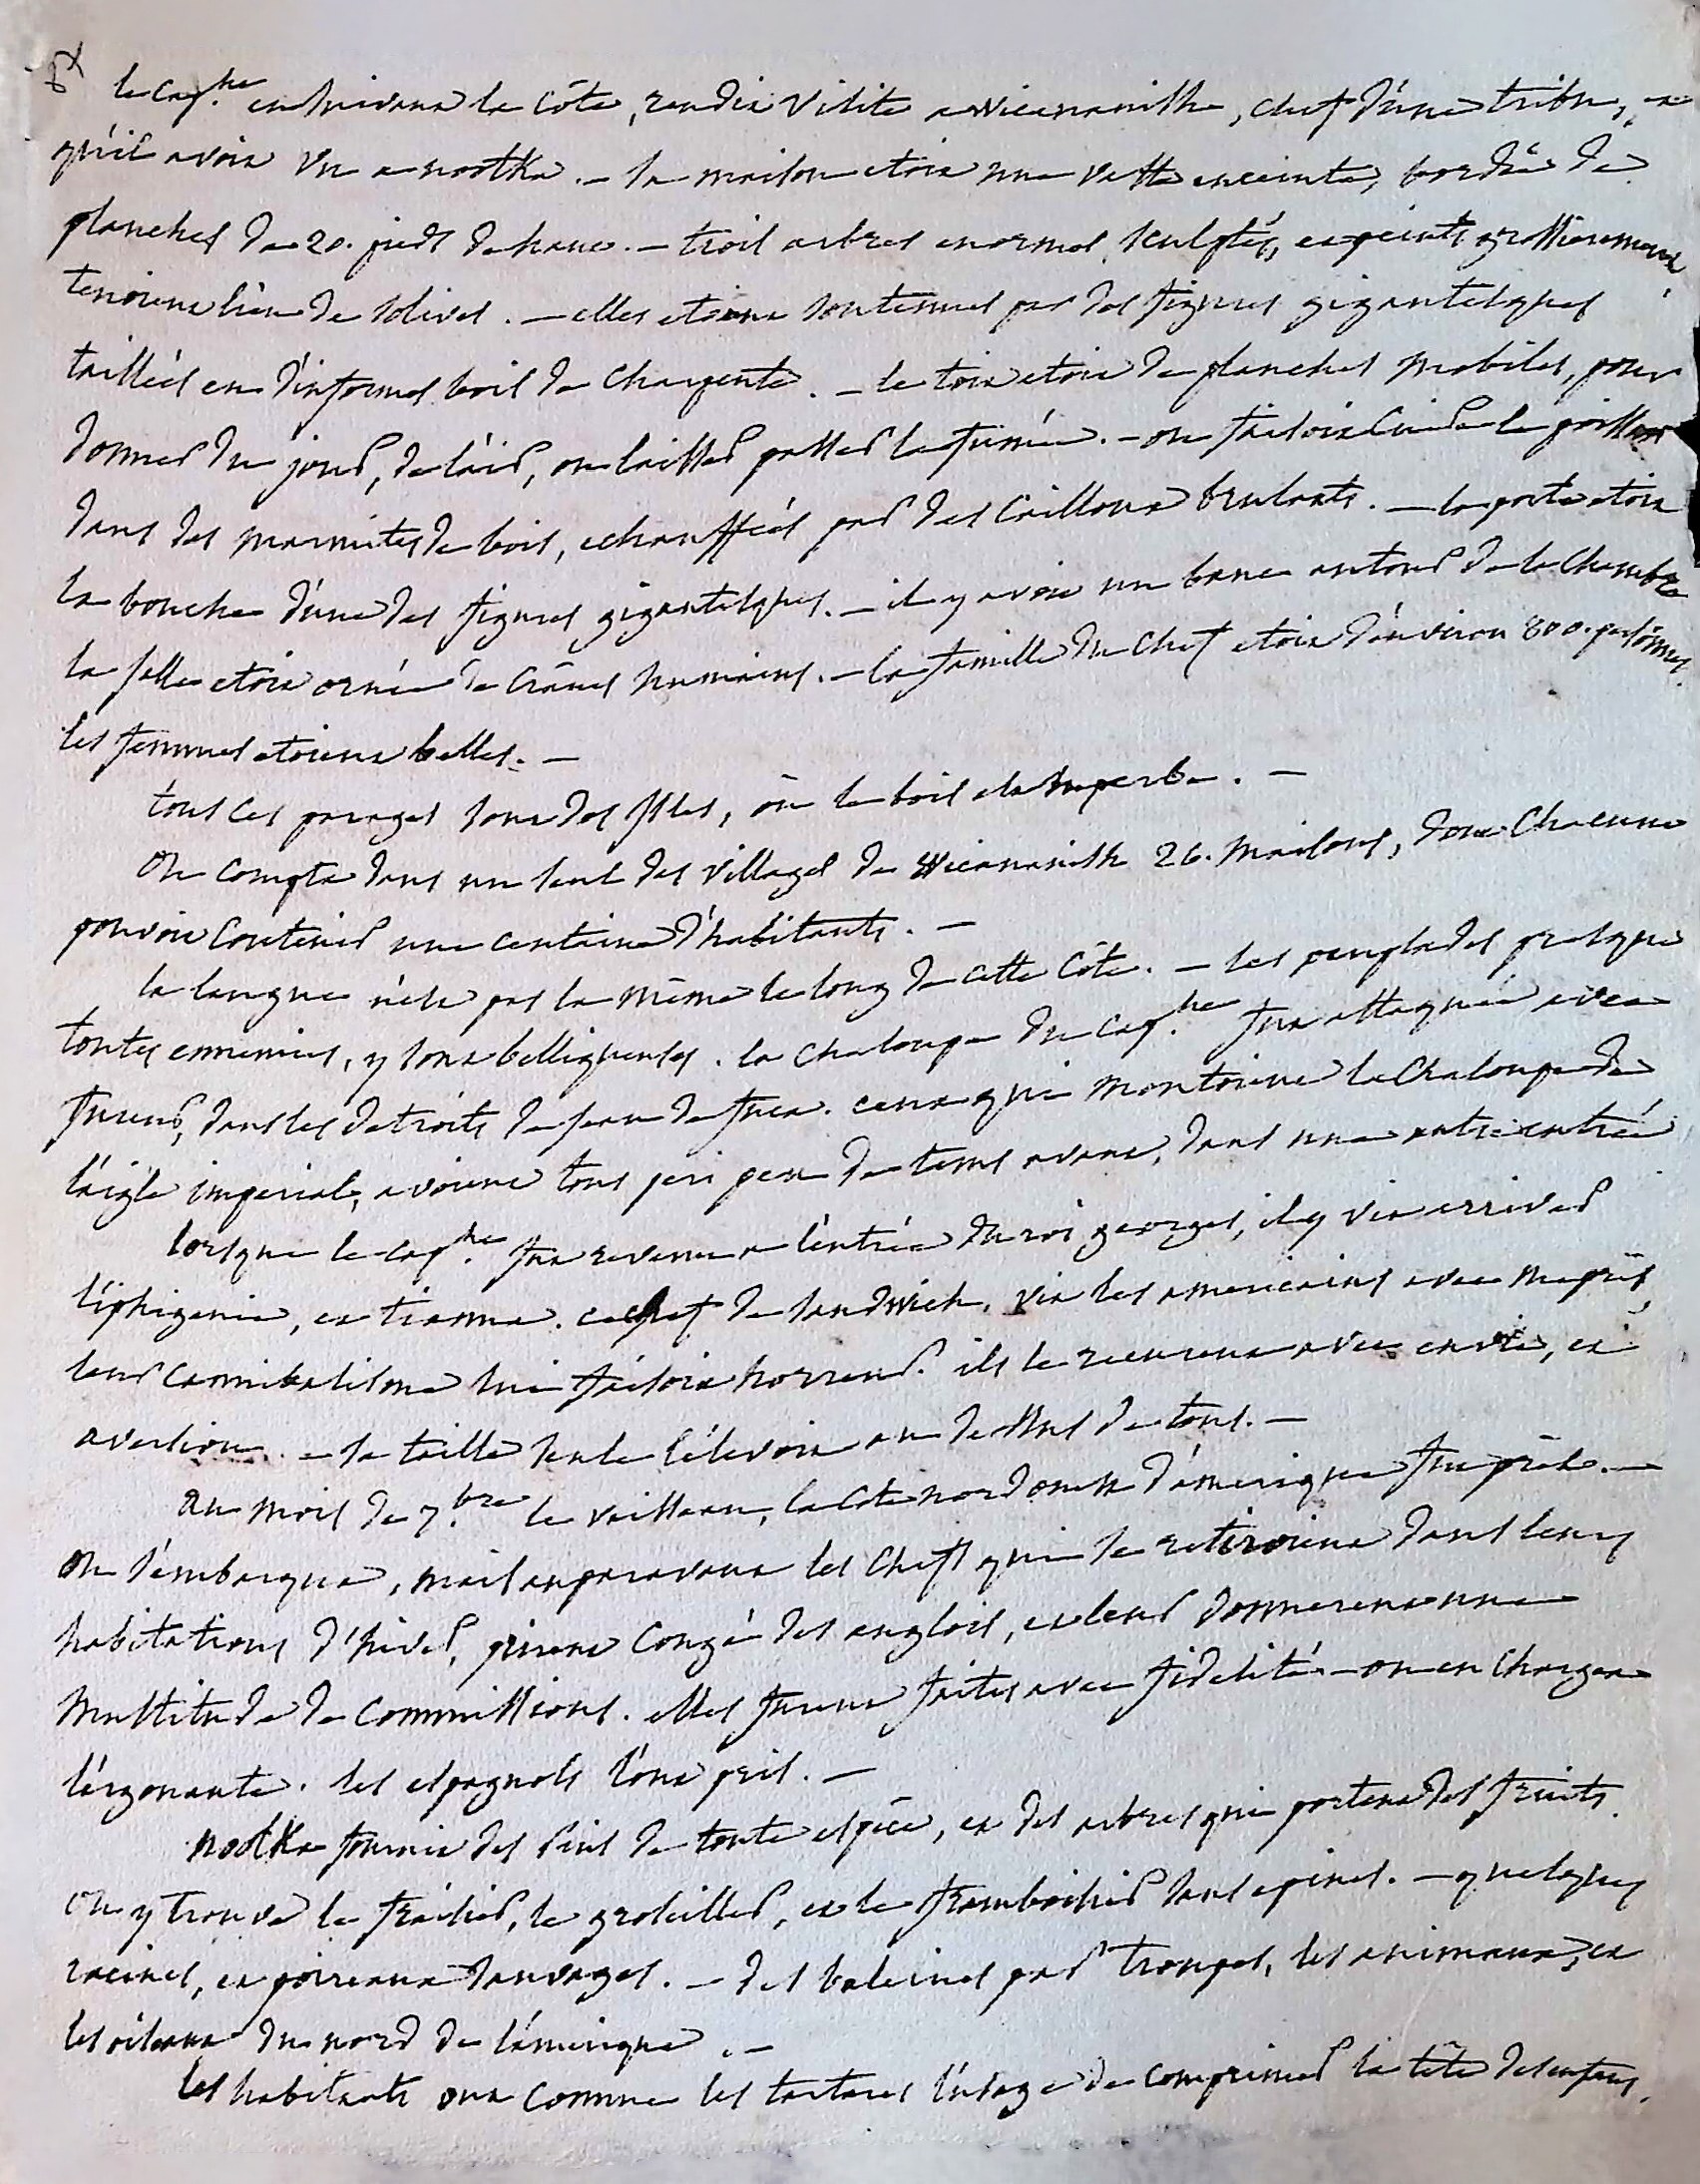 le cap.ne en suivant la côte, rendit visite a wicananish, chef d'une tribu, et
qu'il avoit vu a nootka. – sa maison etoit une vaste enceinte, bordée de
planches de 20. pieds de haut. – trois arbres enormes, sculptés, et peints grossierement,
tenoient lieu de solives. – elles etoient soutenues par des figures gigantesques
taillées en d'informes bois de charpente. – le toit etoit de planches mobiles, pour
donner du jour, de l'air, ou laisser passer la fumée. – on faisoit cuire le poisson
dans des marmites de bois, echauffées par des cailloux brulants. – la porte etoit
la bouche d'une des figures gigantesques. – il y avoit un banc autour de la chambre
la salle etoit ornée de crânes humains. – la famille du chef etoit d'environ 800. persones.
les femmes etoient belles. –
tous ces parages sont des isles, où le bois est superbe. –
on compta dans un seul des villages de wicananish 26. maisons, dont chacune
pouvoit contenir une centaine d'habitants. –
la langue n'est pas la même le long de cette côte. – les peuplades presque
toutes ennemies, y sont belliqueuses. la chaloupe du cap.ne fut attaquée avec
fureur, dans les detroits de jean de fuca. ceux qui montoient la chaloupe de
l'aigle imperial, avoient tous peri peu de tems avant, dans une autre entrée
lorsque le cap.ne fut revenu a l'entrée du roi georges, il y vit arriver
l'iphigenie, et tianna. ce chef de sandwich, vit les americains avec mepris,
leur cannibalisme lui faisoit horreur. ils le recurent avec envie, et
aversion. – sa taille seule l'élevoit au dessus de tous. –
au mois de 7.bre le vaisseau, la cote nord ouest d'amerique fut prêt. –
on s'embarqua, mais auparavant les chefs qui se retiroient dans leurs
habitations d'hiver, prirent congé des anglois, et leur donnerent une
multitude de commissions. elles furent faites avec fidelité – on en chargea
l'argonaute. les espagnols l'ont pris. –
nootka fournit des pins de toute espèce, et des arbres qui portent des fruits.
on y trouve le fraisier, le groseiller, et le framboisier sans epines. – quelques
racines, et poireaux sauvages. – des baleines par troupes, les animaux, et
les oiseaux du nord de l'amerique. –
les habitants ont comme les tartares l'usage de comprimer la tête des enfans.